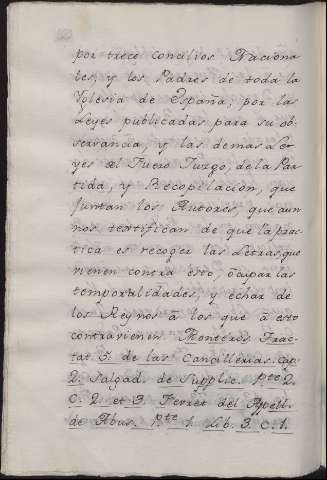 por trece concilios Naciona
les, y los Padres de toda la
Yglesia de España, por las
Leyes publicadas para su ob-
servancia, y las demas Le-
yes del Fuero Juzgo, de la Par-
tida, y Recopilacion, que
juntan los Autores, que aun
nos testifican de que la prac-
tica es recoger las Letras, que
vienen contra esto, ocupar las
temporalidades, y echar de
los Reynos à los que à esto
contravienen. Monteros Trac-
tat. 5. de las Cancillerias. Cap.
2. Salgad. de Supplic. pte 2.
C. 2. et 3. Fevret del Apell.
de Abus. pte 1. Lib. 3. C. 1.